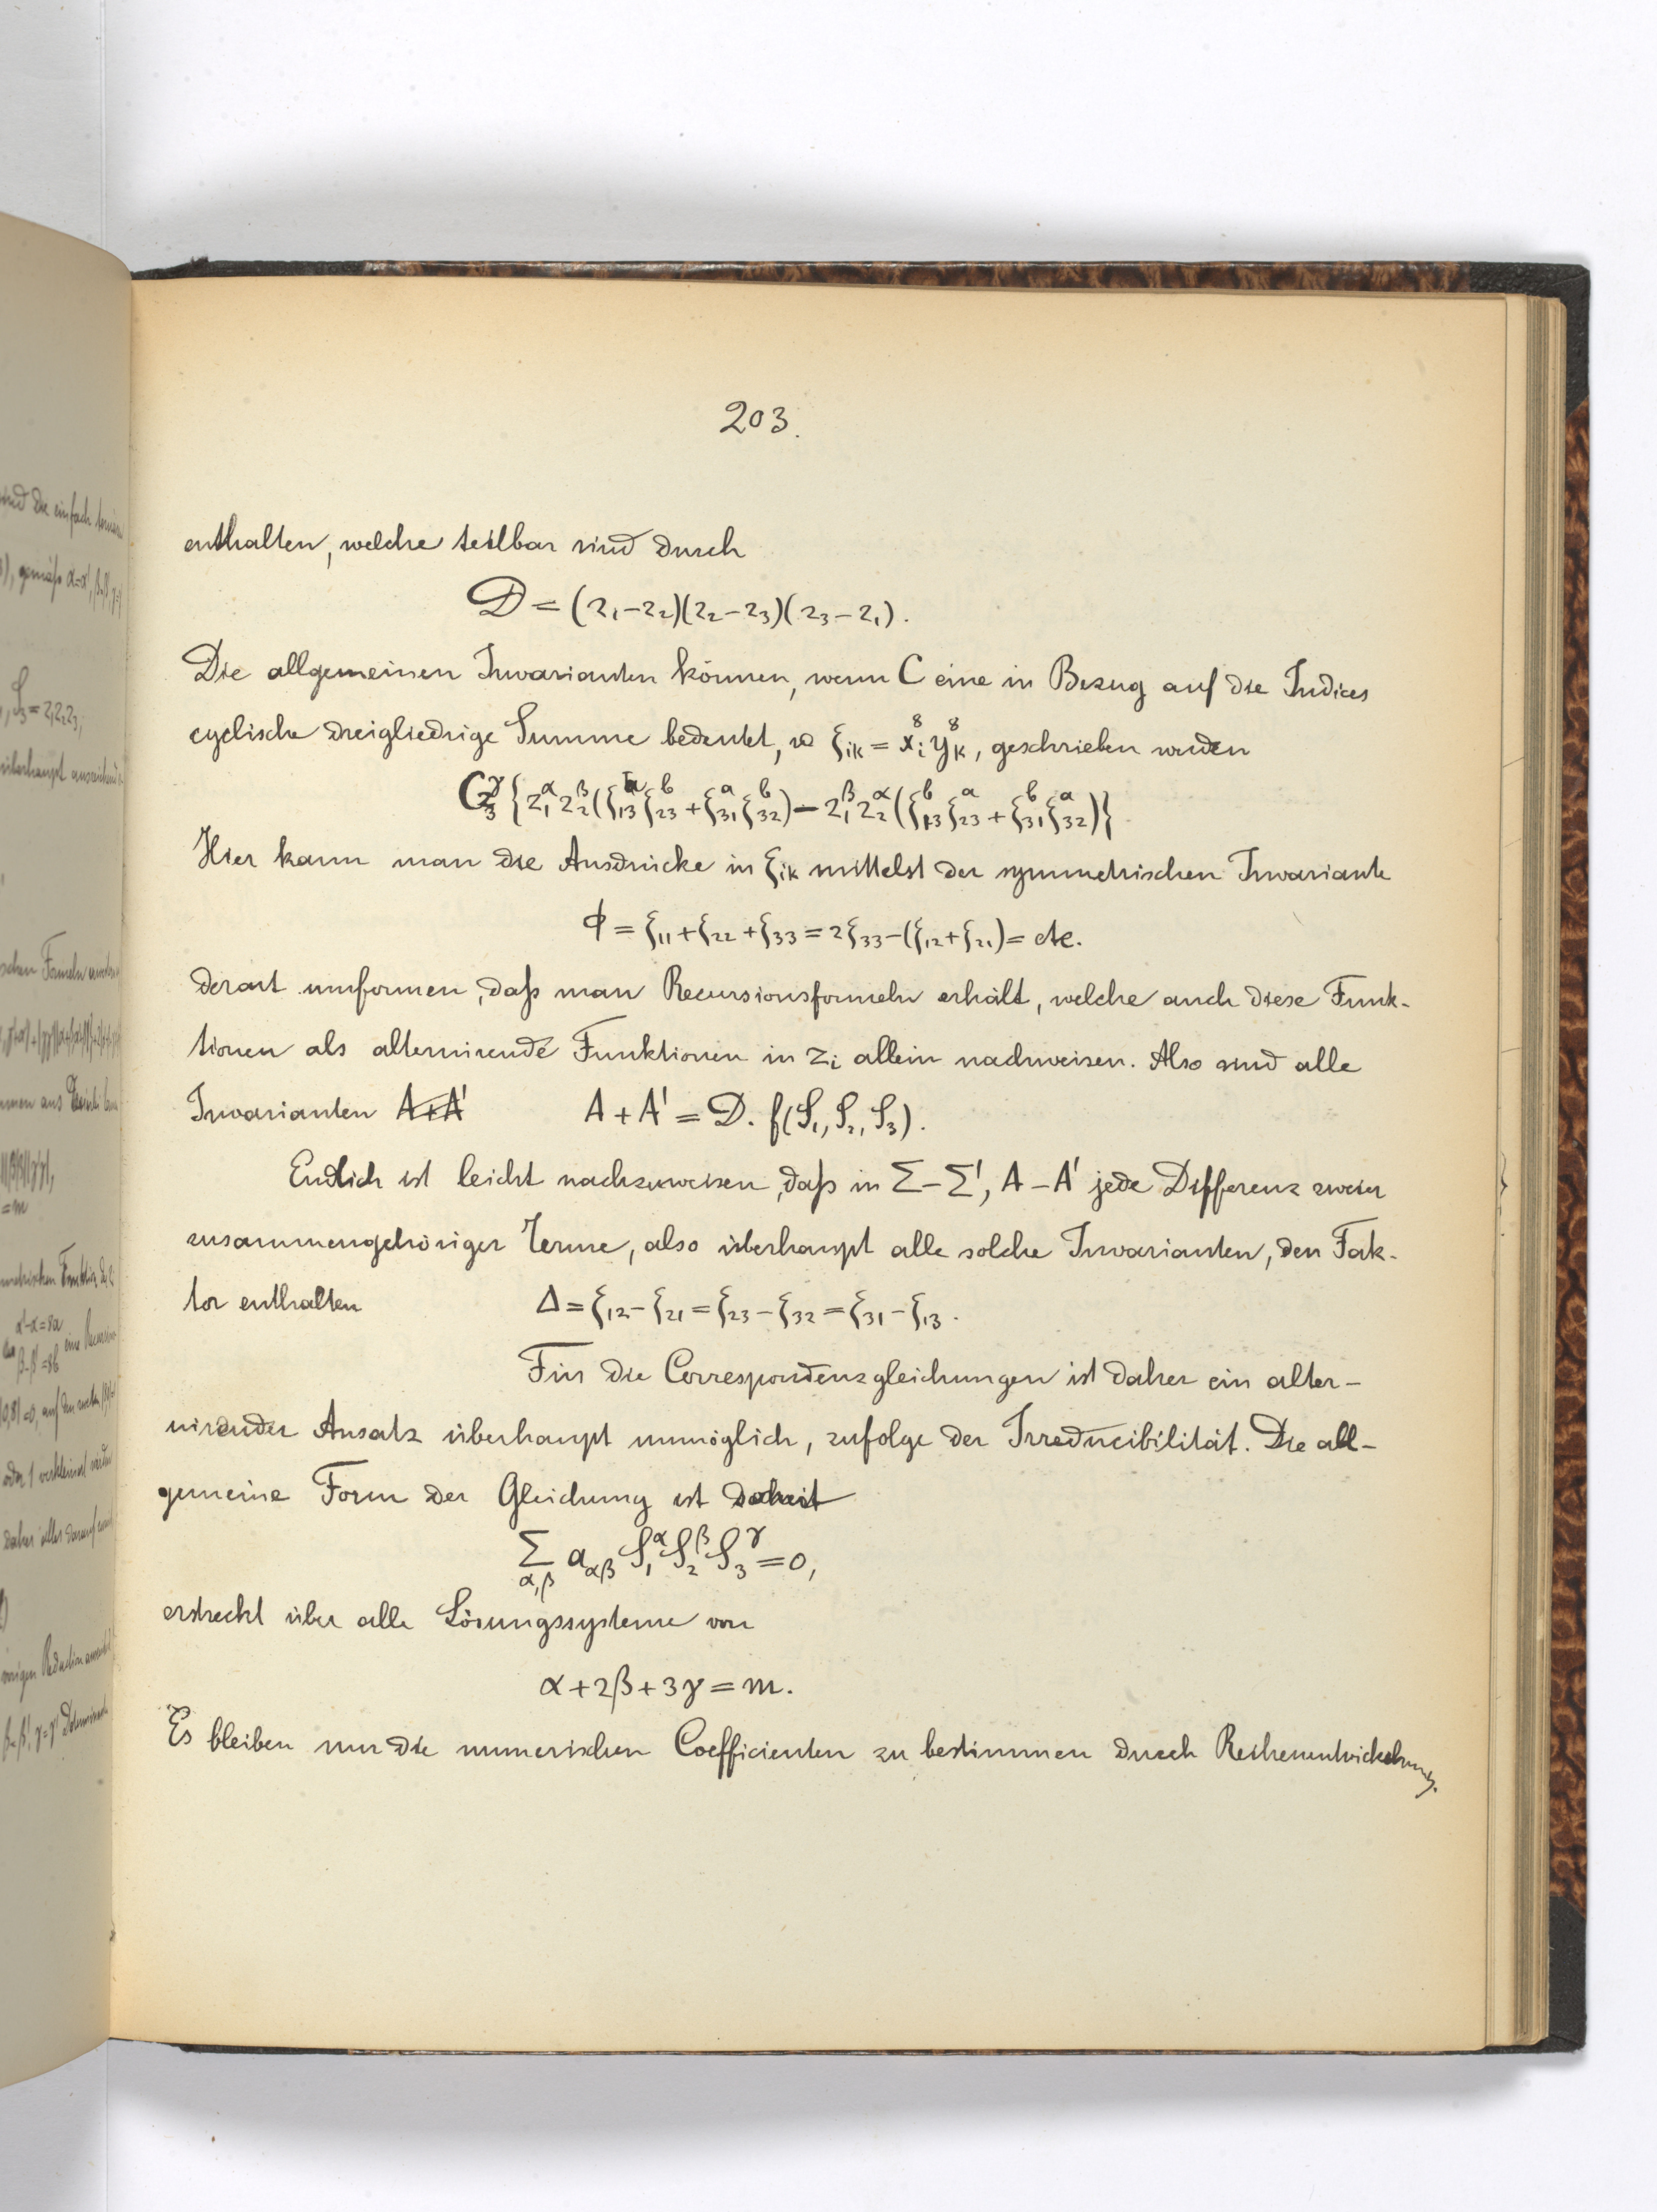 203.
enthalten, welche teilbar sind durch
D = (z₁−z₂)(z₂−z₃)(z₃−z₁).
Die allgemeinen Invarianten können, wenn C eine in Bezug auf die Indices
cyclische dreigliedrige Summe bedeutet, u. ξᵢₖ = xᵢ⁸ yₖ⁸, geschrieben werden
C z₃^γ {z₁^α z₂^β (ξ₁₃^a ξ₂₃^b + ξ₃₁^a ξ₃₂^b) − z₁^β z₂^α (ξ₁₃^b ξ₂₃^a + ξ₃₁^b ξ₃₂^a)}
Hier kann man die Ausdrücke in ξᵢₖ mittelst der symmetrischen Invariante
ϕ = ξ₁₁+ξ₂₂+ξ₃₃ = 2ξ₃₃−(ξ₁₂+ξ₂₁) = etc.
derart umformen, daß man Recursionsformeln erhält, welche auch diese Funk-
tionen als alternirende Funktionen in zᵢ allein nachweisen. Also sind alle
Invarianten A+A' A + A' = D. f(S₁, S₂, S₃).
Endlich ist leicht nachzuweisen, daß in Σ−Σ', A−A' jede Differenz zweier
zusammengehöriger Terme, also überhaupt alle solche Invarianten, den Fak-
tor enthalten Δ = ξ₁₂−ξ₂₁ = ξ₂₃−ξ₃₂ = ξ₃₁−ξ₁₃.
Für die Correspondenzgleichungen ist daher ein alter-
nirender Ansatz überhaupt unmöglich, zufolge der Irreducibilität. Die all-
gemeine Form der Gleichung ist
Σ_{α,β} a_{αβ} S₁^α S₂^β S₃^γ = 0,
erstreckt über alle Lösungssysteme von
α+2β+3γ = m.
Es bleiben nur die numerischen Coefficienten zu bestimmen durch Reihenentwickelung.